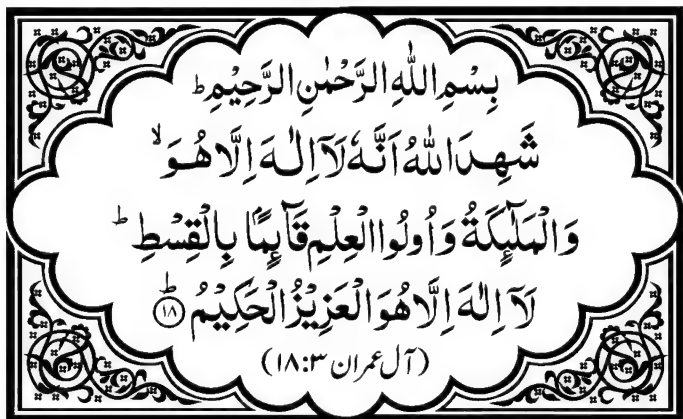 بِسْمِ اللّٰهِ الرَّحْمٰنِ الرَّحِيْمِ ؕ
شَهِدَ اللّٰهُ اَنَّهٗ لَاۤ اِلٰهَ اِلَّا هُوَ ۙ
وَالْمَلٰٓئِكَةُ وَاُولُوا الْعِلْمِ قَآئِمًۢا بِالْقِسْطِ ؕ
لَاۤ اِلٰهَ اِلَّا هُوَ الْعَزِيْزُ الْحَكِيْمُ ؕ ۝۱۸
(آل عمران ۱۸:۳)